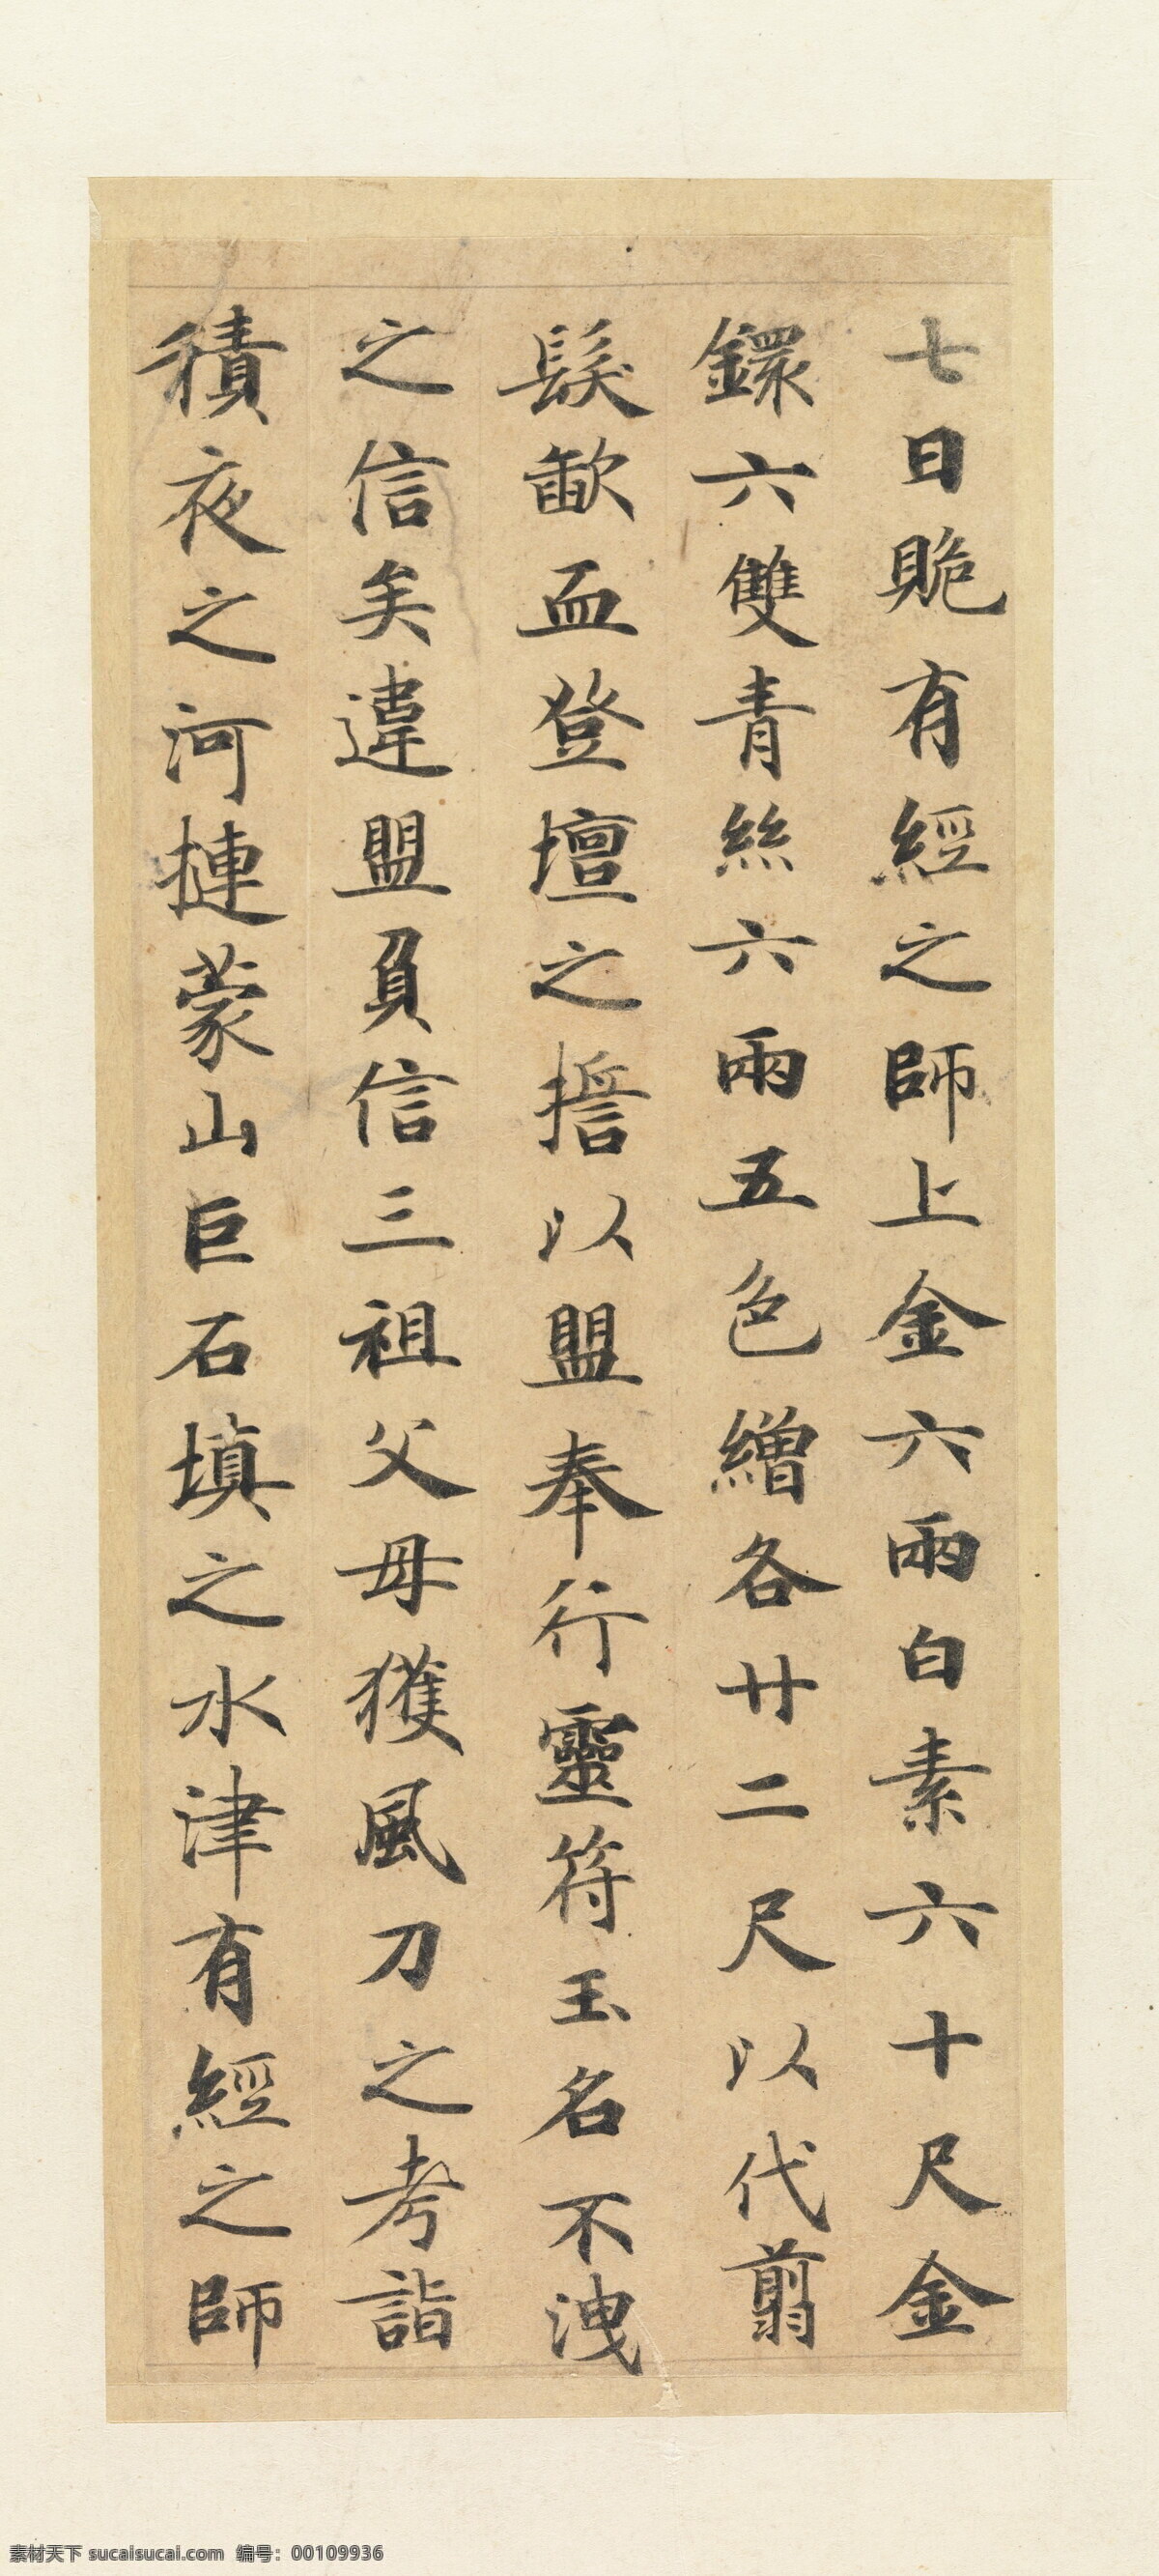 七日賝有經之師上金六兩白素六十尺金
鐶六雙青絲六兩五色繒各廿二尺以代翦
髮歃血登壇之誓以盟奉行靈符玉名不洩
之信矣違盟負信三祖父母獲風刀之考詣
積夜之河摙蒙山巨石填之水津有經之師
素材天下 sucaisucai.com 编号：00109936